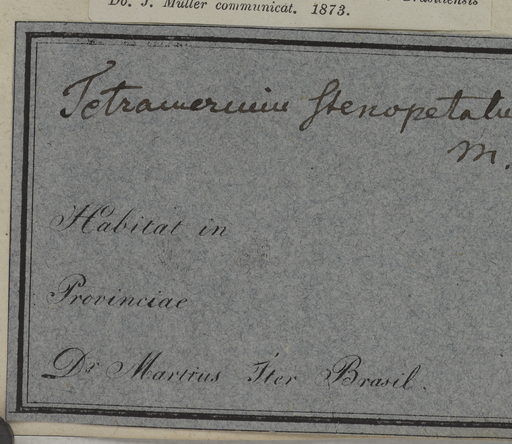 Brasiliensis
Do. J. Müller communicat. 1873.
Tetramerium stenopetalu
M.
Habitat in
Provinciae
Dr Martius Iter Brasil.